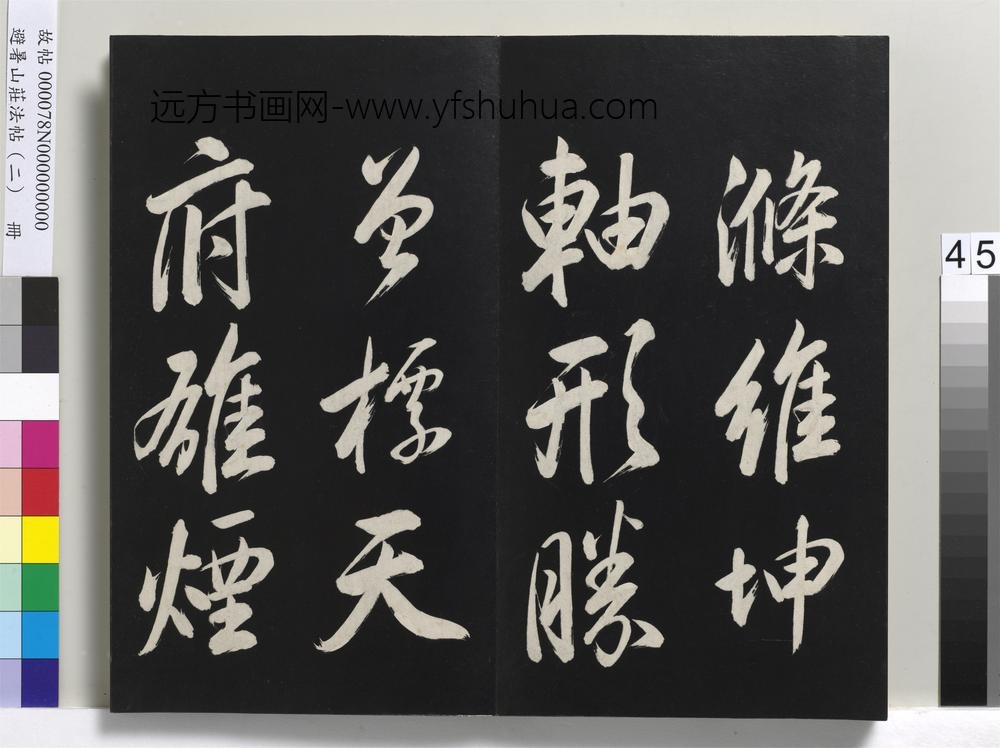 滌維坤
軸形勝
曾標天
府雄煙
远方书画网-www.yfshuhua.com
故帖 000078N000000000
避暑山莊法帖(二) 冊
45